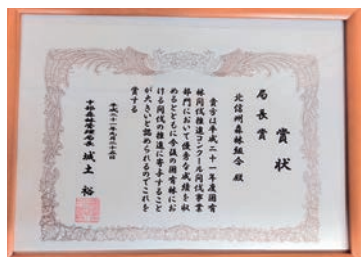 賞状
局長賞
北信州森林組合 殿
貴方は平成二十一年度国有
林間伐推進コンクール間伐事業
部門において優秀な成績を収
めるとともに今後の国有林にお
ける間伐の推進に寄与すること
が大きいと認められるのでこれを
賞する
平成二十一年
中部森林管理局長 城土 裕